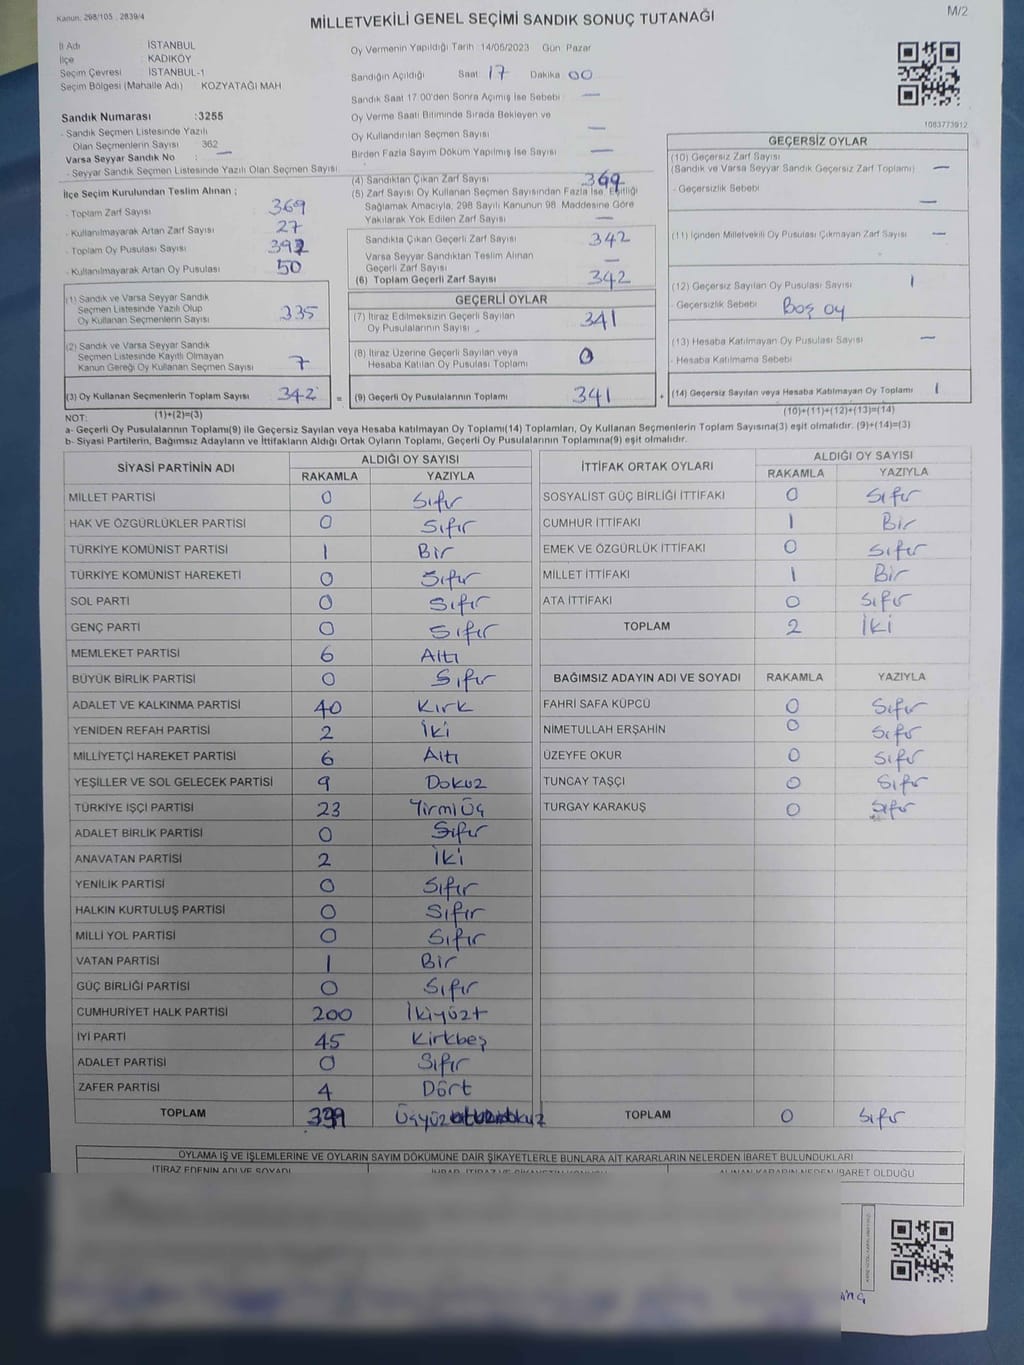 Kanun, 298/105 , 2839/4
MİLLETVEKİLİ GENEL SEÇİMİ SANDIK SONUÇ TUTANAĞI
M/2
İl Adı : İSTANBUL
İlçe : KADIKÖY
Seçim Çevresi : İSTANBUL-1
Seçim Bölgesi (Mahalle Adı) KOZYATAĞI MAH
Sandık Numarası :3255
- Sandık Seçmen Listesinde Yazılı
Olan Seçmenlerin Sayısı 362
Varsa Seyyar Sandık No : —
- Seyyar Sandık Seçmen Listesinde Yazılı Olan Seçmen Sayısı:
İlçe Seçim Kurulundan Teslim Alınan ;
- Toplam Zarf Sayısı 369
- Kullanılmayarak Artan Zarf Sayısı 27
- Toplam Oy Pusulası Sayısı 392
- Kullanılmayarak Artan Oy Pusulası 50
(1) Sandık ve Varsa Seyyar Sandık
Seçmen Listesinde Yazılı Olup
Oy Kullanan Seçmenlerin Sayısı 335
(2) Sandık ve Varsa Seyyar Sandık
Seçmen Listesinde Kayıtlı Olmayan
Kanun Gereği Oy Kullanan Seçmen Sayısı 7
(3) Oy Kullanan Seçmenlerin Toplam Sayısı 342 =
Oy Vermenin Yapıldığı Tarih :14/05/2023 Gün Pazar
Sandığın Açıldığı Saat 17 Dakika 00
Sandık Saat 17.00'den Sonra Açımış İse Sebebi —
Oy Verme Saati Bitiminde Sırada Bekleyen ve
Oy Kullandırılan Seçmen Sayısı —
Birden Fazla Sayım Döküm Yapılmış İse Sayısı —
(4) Sandıktan Çıkan Zarf Sayısı 369
(5) Zarf Sayısı Oy Kullanan Seçmen Sayısından Fazla İse, Eşitliği
Sağlamak Amacıyla, 298 Sayılı Kanunun 98. Maddesine Göre
Yakılarak Yok Edilen Zarf Sayısı —
Sandıkta Çıkan Geçerli Zarf Sayısı 342
Varsa Seyyar Sandıktan Teslim Alınan
Geçerli Zarf Sayısı —
(6) Toplam Geçerli Zarf Sayısı 342
GEÇERLİ OYLAR
(7) İtiraz Edilmeksizin Geçerli Sayılan
Oy Pusulalarının Sayısı 341
(8) İtiraz Üzerine Geçerli Sayılan veya
Hesaba Katılan Oy Pusulası Toplamı 0
(9) Geçerli Oy Pusulalarının Toplamı 341 +
1083773912
GEÇERSİZ OYLAR
(10) Geçersiz Zarf Sayısı
(Sandık ve Varsa Seyyar Sandık Geçersiz Zarf Toplamı) —
- Geçersizlik Sebebi —
(11) İçinden Milletvekili Oy Pusulası Çıkmayan Zarf Sayısı —
(12) Geçersiz Sayılan Oy Pusulası Sayısı 1
- Geçersizlik Sebebi Boş oy
(13) Hesaba Katılmayan Oy Pusulası Sayısı —
- Hesaba Katılmama Sebebi
(14) Geçersiz Sayılan veya Hesaba Katılmayan Oy Toplamı 1
NOT: (1)+(2)=(3) (10)+(11)+(12)+(13)=(14)
a- Geçerli Oy Pusulalarının Toplamı(9) ile Geçersiz Sayılan veya Hesaba katılmayan Oy Toplamı(14) Toplamları, Oy Kullanan Seçmenlerin Toplam Sayısına(3) eşit olmalıdır. (9)+(14)=(3)
b- Siyasi Partilerin, Bağımsız Adayların ve İttifakların Aldığı Ortak Oyların Toplamı, Geçerli Oy Pusulalarının Toplamına(9) eşit olmalıdır.
SİYASİ PARTİNİN ADI ALDIĞI OY SAYISI
RAKAMLA YAZIYLA
MİLLET PARTİSİ 0 Sıfır
HAK VE ÖZGÜRLÜKLER PARTİSİ 0 Sıfır
TÜRKİYE KOMÜNİST PARTİSİ 1 Bir
TÜRKİYE KOMÜNİST HAREKETİ 0 Sıfır
SOL PARTİ 0 Sıfır
GENÇ PARTİ 0 Sıfır
MEMLEKET PARTİSİ 6 Altı
BÜYÜK BİRLİK PARTİSİ 0 Sıfır
ADALET VE KALKINMA PARTİSİ 40 Kırk
YENİDEN REFAH PARTİSİ 2 İki
MİLLİYETÇİ HAREKET PARTİSİ 6 Altı
YEŞİLLER VE SOL GELECEK PARTİSİ 9 Dokuz
TÜRKİYE İŞÇİ PARTİSİ 23 Yirmi Üç
ADALET BİRLİK PARTİSİ 0 Sıfır
ANAVATAN PARTİSİ 2 İki
YENİLİK PARTİSİ 0 Sıfır
HALKIN KURTULUŞ PARTİSİ 0 Sıfır
MİLLİ YOL PARTİSİ 0 Sıfır
VATAN PARTİSİ 1 Bir
GÜÇ BİRLİĞİ PARTİSİ 0 Sıfır
CUMHURİYET HALK PARTİSİ 200 İkiyüzt
İYİ PARTİ 45 Kırkbeş
ADALET PARTİSİ 0 Sıfır
ZAFER PARTİSİ 4 Dört
TOPLAM 339 Üçyüzotuzdokuz
İTTİFAK ORTAK OYLARI ALDIĞI OY SAYISI
RAKAMLA YAZIYLA
SOSYALİST GÜÇ BİRLİĞİ İTTİFAKI 0 Sıfır
CUMHUR İTTİFAKI 1 Bir
EMEK VE ÖZGÜRLÜK İTTİFAKI 0 Sıfır
MİLLET İTTİFAKI 1 Bir
ATA İTTİFAKI 0 Sıfır
TOPLAM 2 İki
BAĞIMSIZ ADAYIN ADI VE SOYADI RAKAMLA YAZIYLA
FAHRİ SAFA KÜPCÜ 0 Sıfır
NİMETULLAH ERŞAHİN 0 Sıfır
ÜZEYFE OKUR 0 Sıfır
TUNCAY TAŞÇI 0 Sıfır
TURGAY KARAKUŞ 0 Sıfır
TOPLAM 0 Sıfır
OYLAMA İŞ VE İŞLEMLERİNE VE OYLARIN SAYIM DÖKÜMÜNE DAİR ŞİKAYETLERLE BUNLARA AİT KARARLARIN NELERDEN İBARET BULUNDUKLARI
İTİRAZ EDENİN ADI VE SOYADI ALINAN KARARIN NEDEN İBARET OLDUĞU